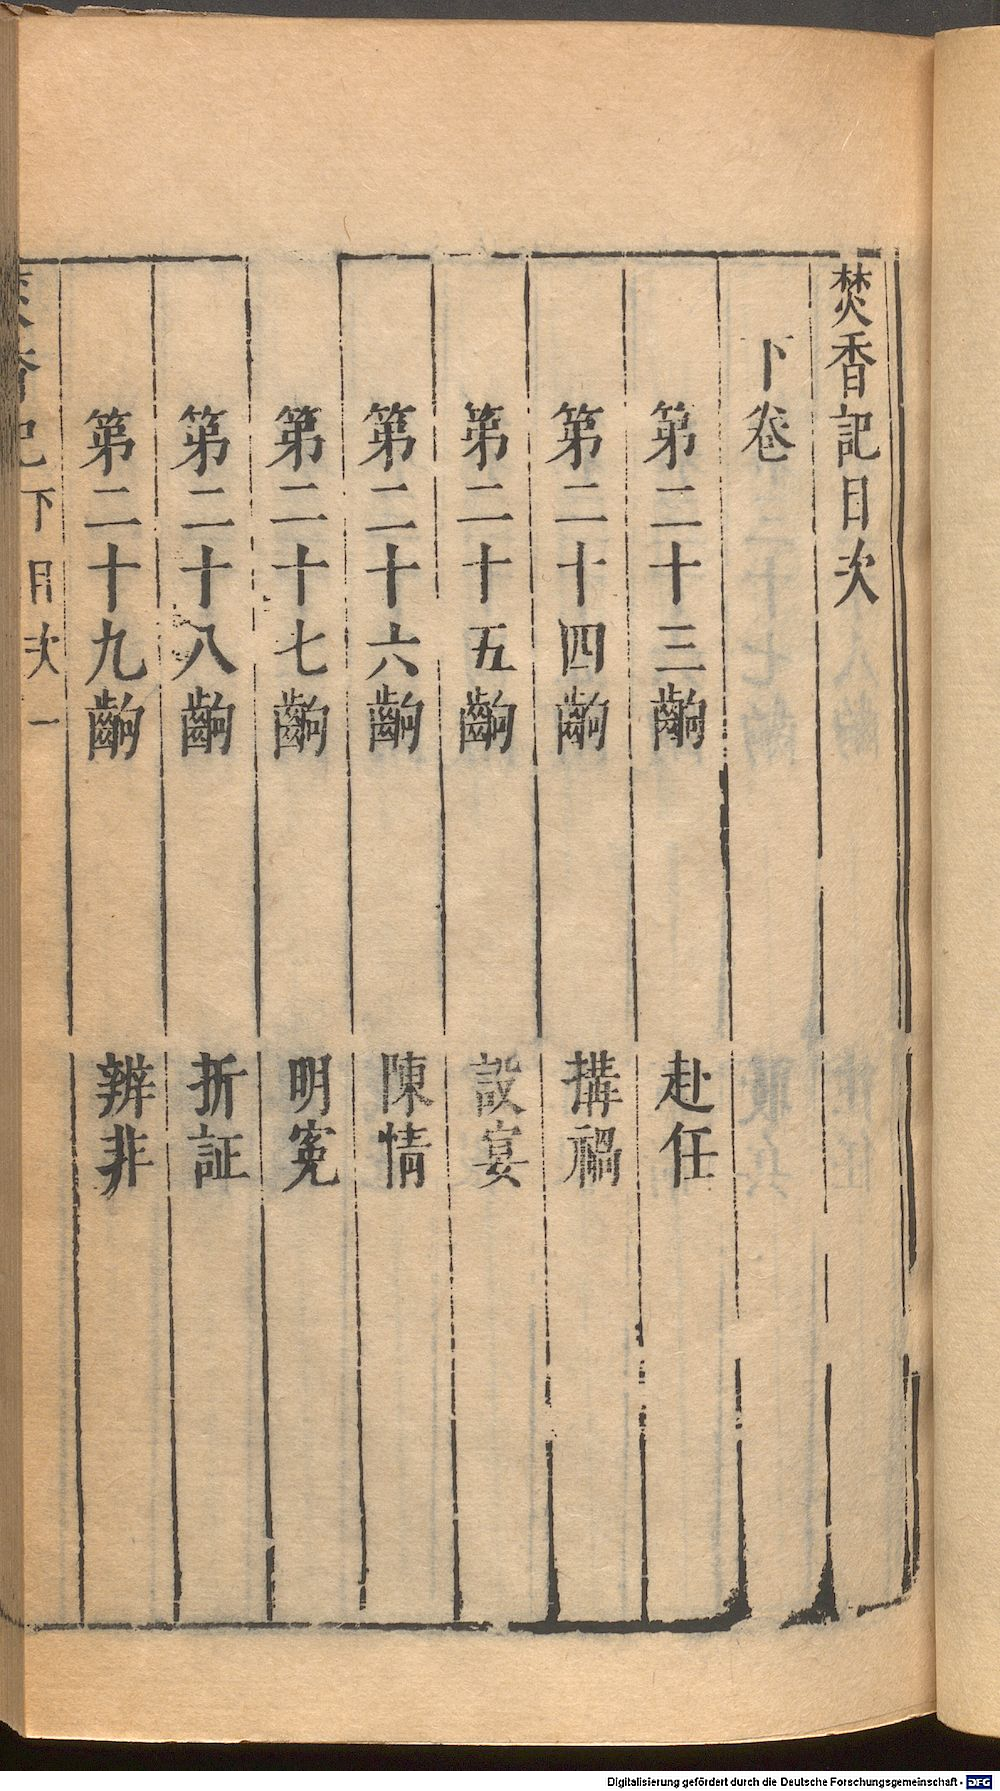 焚香記目次
下卷
第二十三齣 赴任
第二十四齣 搆禍
第二十五齣 設宴
第二十六齣 陳情
第二十七齣 明冤
第二十八齣 折証
第二十九齣 辨非
香記下目次 一
Digitalisierung gefördert durch die Deutsche Forschungsgemeinschaft - DFG